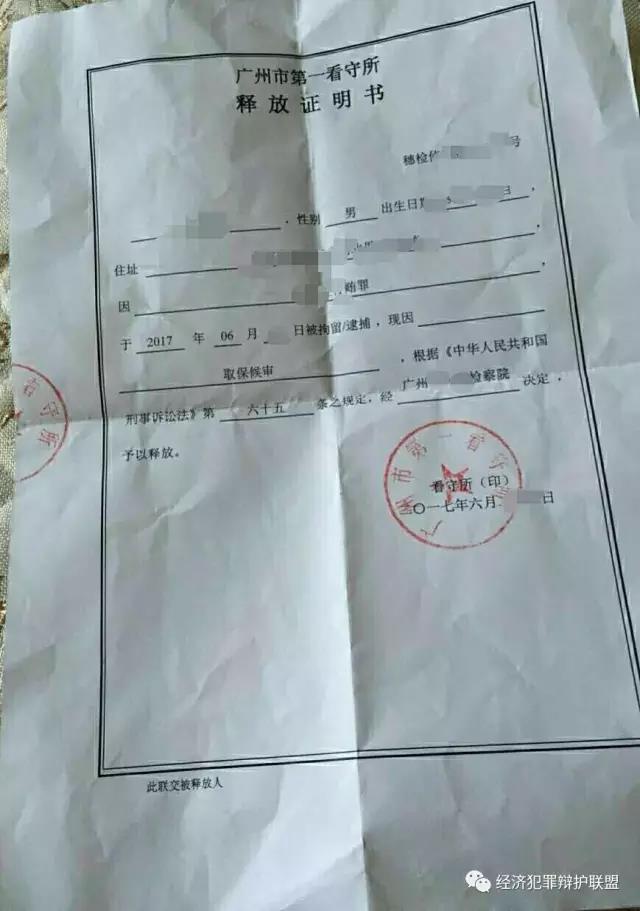 广州市第一看守所
释放证明书
穗检 号
性别 男 出生日 ,
住址 ,
因 贿罪 ,
于 2017 年 06 月 日被拘留/逮捕,现因
取保候审 ,根据《中华人民共和国
刑事诉讼法》第 六十五 条之规定,经 广州 检察院 决定,
予以释放。
广州市第一看守所
看守所(印)
二〇一七年六月 日
看守所
此联交被释放人
经济犯罪辩护联盟